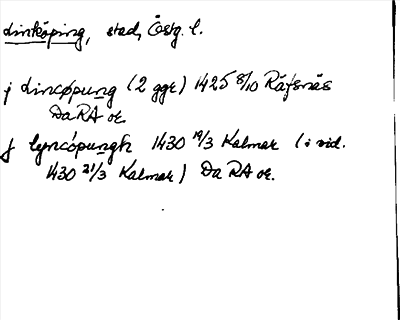 Linköping, stad, Östg. l.
j Lincøpung (2 ggr) 1425 8/10 Räfsnäs
DaRA or.
j lyncópungh 1430 19/3 Kalmar (i vid.
1430 21/3 Kalmar) DaRA or.